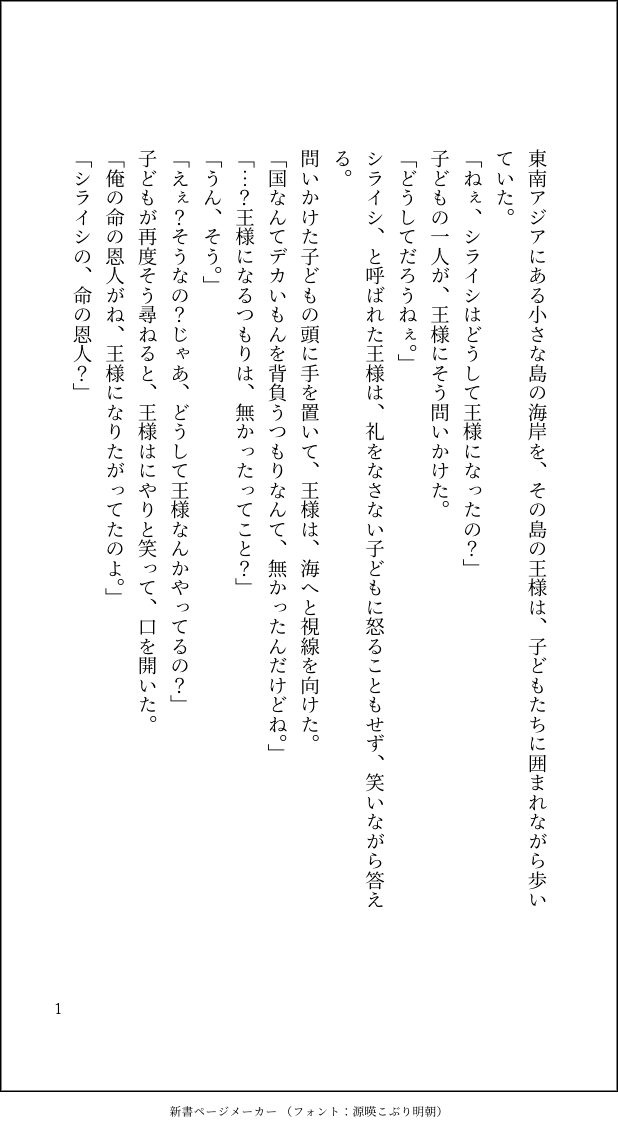 東南アジアにある小さな島の海岸を、その島の王様は、子どもたちに囲まれながら歩い
ていた。
「ねぇ、シライシはどうして王様になったの？」
子どもの一人が、王様にそう問いかけた。
「どうしてだろうねぇ。」
シライシ、と呼ばれた王様は、礼をなさない子どもに怒ることもせず、笑いながら答え
る。
問いかけた子どもの頭に手を置いて、王様は、海へと視線を向けた。
「国なんてデカいもんを背負うつもりなんて、無かったんだけどね。」
「…？王様になるつもりは、無かったってこと？」
「うん、そう。」
「えぇ？そうなの？じゃあ、どうして王様なんかやってるの？」
子どもが再度そう尋ねると、王様はにやりと笑って、口を開いた。
「俺の命の恩人がね、王様になりたがってたのよ。」
「シライシの、命の恩人？」
1
新書ページメーカー（フォント：源暎こぶり明朝）